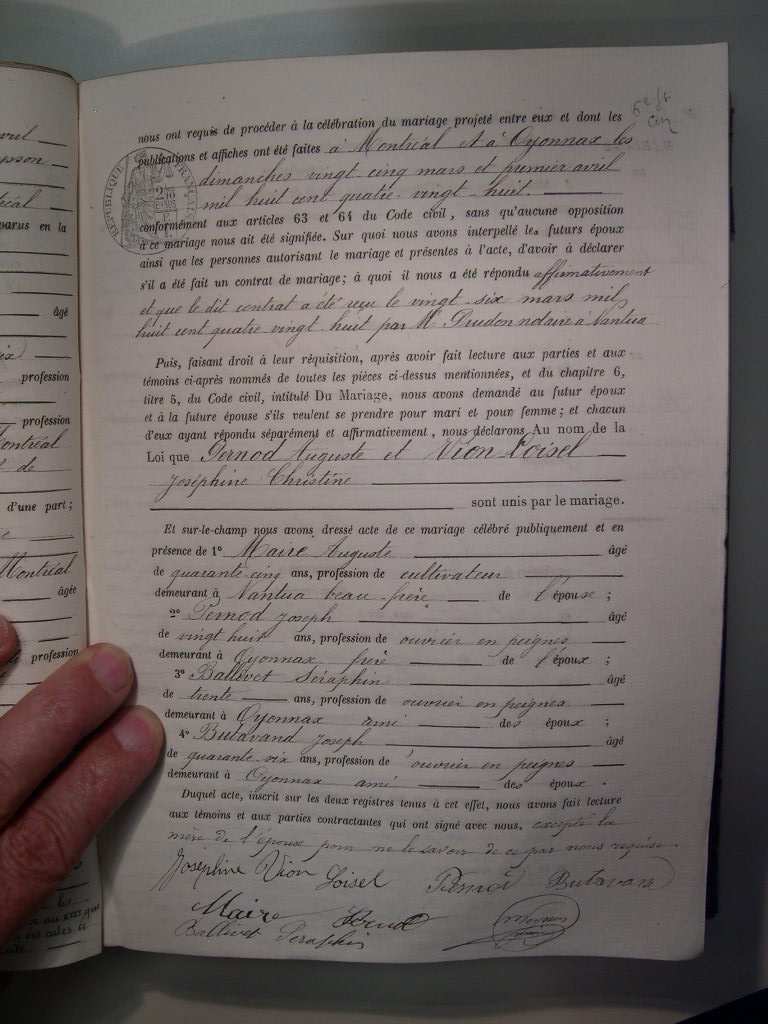 nous ont requis de procéder à la célébration du mariage projeté entre eux et dont les
publications et affiches ont été faites à Montréal et à Oyonnax les
dimanches vingt-cinq mars et premier avril
mil huit cent quatre-vingt-huit.
RÉPUBLIQUE FRANÇAISE
conformément aux articles 63 et 64 du Code civil, sans qu'aucune opposition
à ce mariage nous ait été signifiée. Sur quoi nous avons interpellé les futurs époux
ainsi que les personnes autorisant le mariage et présentes à l'acte, d'avoir à déclarer
s'il a été fait un contrat de mariage; à quoi il nous a été répondu affirmativement
et que le dit contrat a été reçu le vingt-six mars mil
huit cent quatre vingt huit par Me Prudon notaire à Nantua
Puis, faisant droit à leur réquisition, après avoir fait lecture aux parties et aux
témoins ci-après nommés de toutes les pièces ci-dessus mentionnées, et du chapitre 6,
titre 5, du Code civil, intitulé Du Mariage, nous avons demandé au futur époux
et à la future épouse s'ils veulent se prendre pour mari et pour femme; et chacun
d'eux ayant répondu séparément et affirmativement, nous déclarons Au nom de la
Loi que Pernod Auguste et Vion Loisel
Joséphine Christine
sont unis par le mariage.
Et sur-le-champ nous avons dressé acte de ce mariage célébré publiquement et en
présence de 1° Maire Auguste âgé
de quarante-cinq ans, profession de cultivateur
demeurant à Nantua beau-frère de l'époux;
2° Pernod Joseph âgé
de vingt huit ans, profession de ouvrier en peignes
demeurant à Oyonnax frère de l'époux;
3° Ballivet Séraphin âgé
de trente ans, profession de ouvrier en peignes
demeurant à Oyonnax ami des époux;
4° Butavand Joseph âgé
de quarante-six ans, profession d'ouvrier en peignes
demeurant à Oyonnax ami des époux.
Duquel acte, inscrit sur les deux registres tenus à cet effet, nous avons fait lecture
aux témoins et aux parties contractantes qui ont signé avec nous, excepté la
mère de l'époux pour ne le savoir de ce par nous requise.
Joséphine Vion Loisel Pernod Butavand
Maire
Ballivet Séraphin